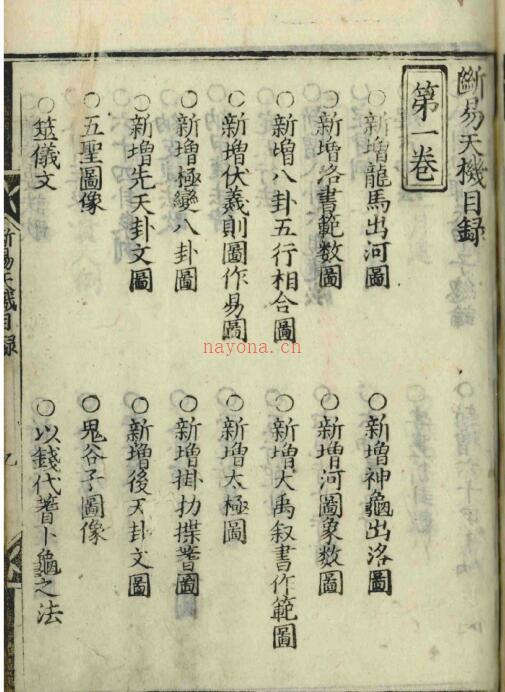 斷易天機目録
第一卷
○新增龍馬出河圖
○新增神龜出洛圖
○新增洛書範數圖
○新增河圖象數圖
○新增八卦五行相合圖
○新增大禹叙書作範圖
○新增伏羲則圖作易圖
○新增太極圖
○新增極變八卦圖
○新增掛扐揲蓍圖
○新增先天卦文圖
○新增後天卦文圖
○五聖圖像
○鬼谷子圖像
○筮儀文
○以錢代蓍卜龜之法
斷易天機目録
nayona.cn